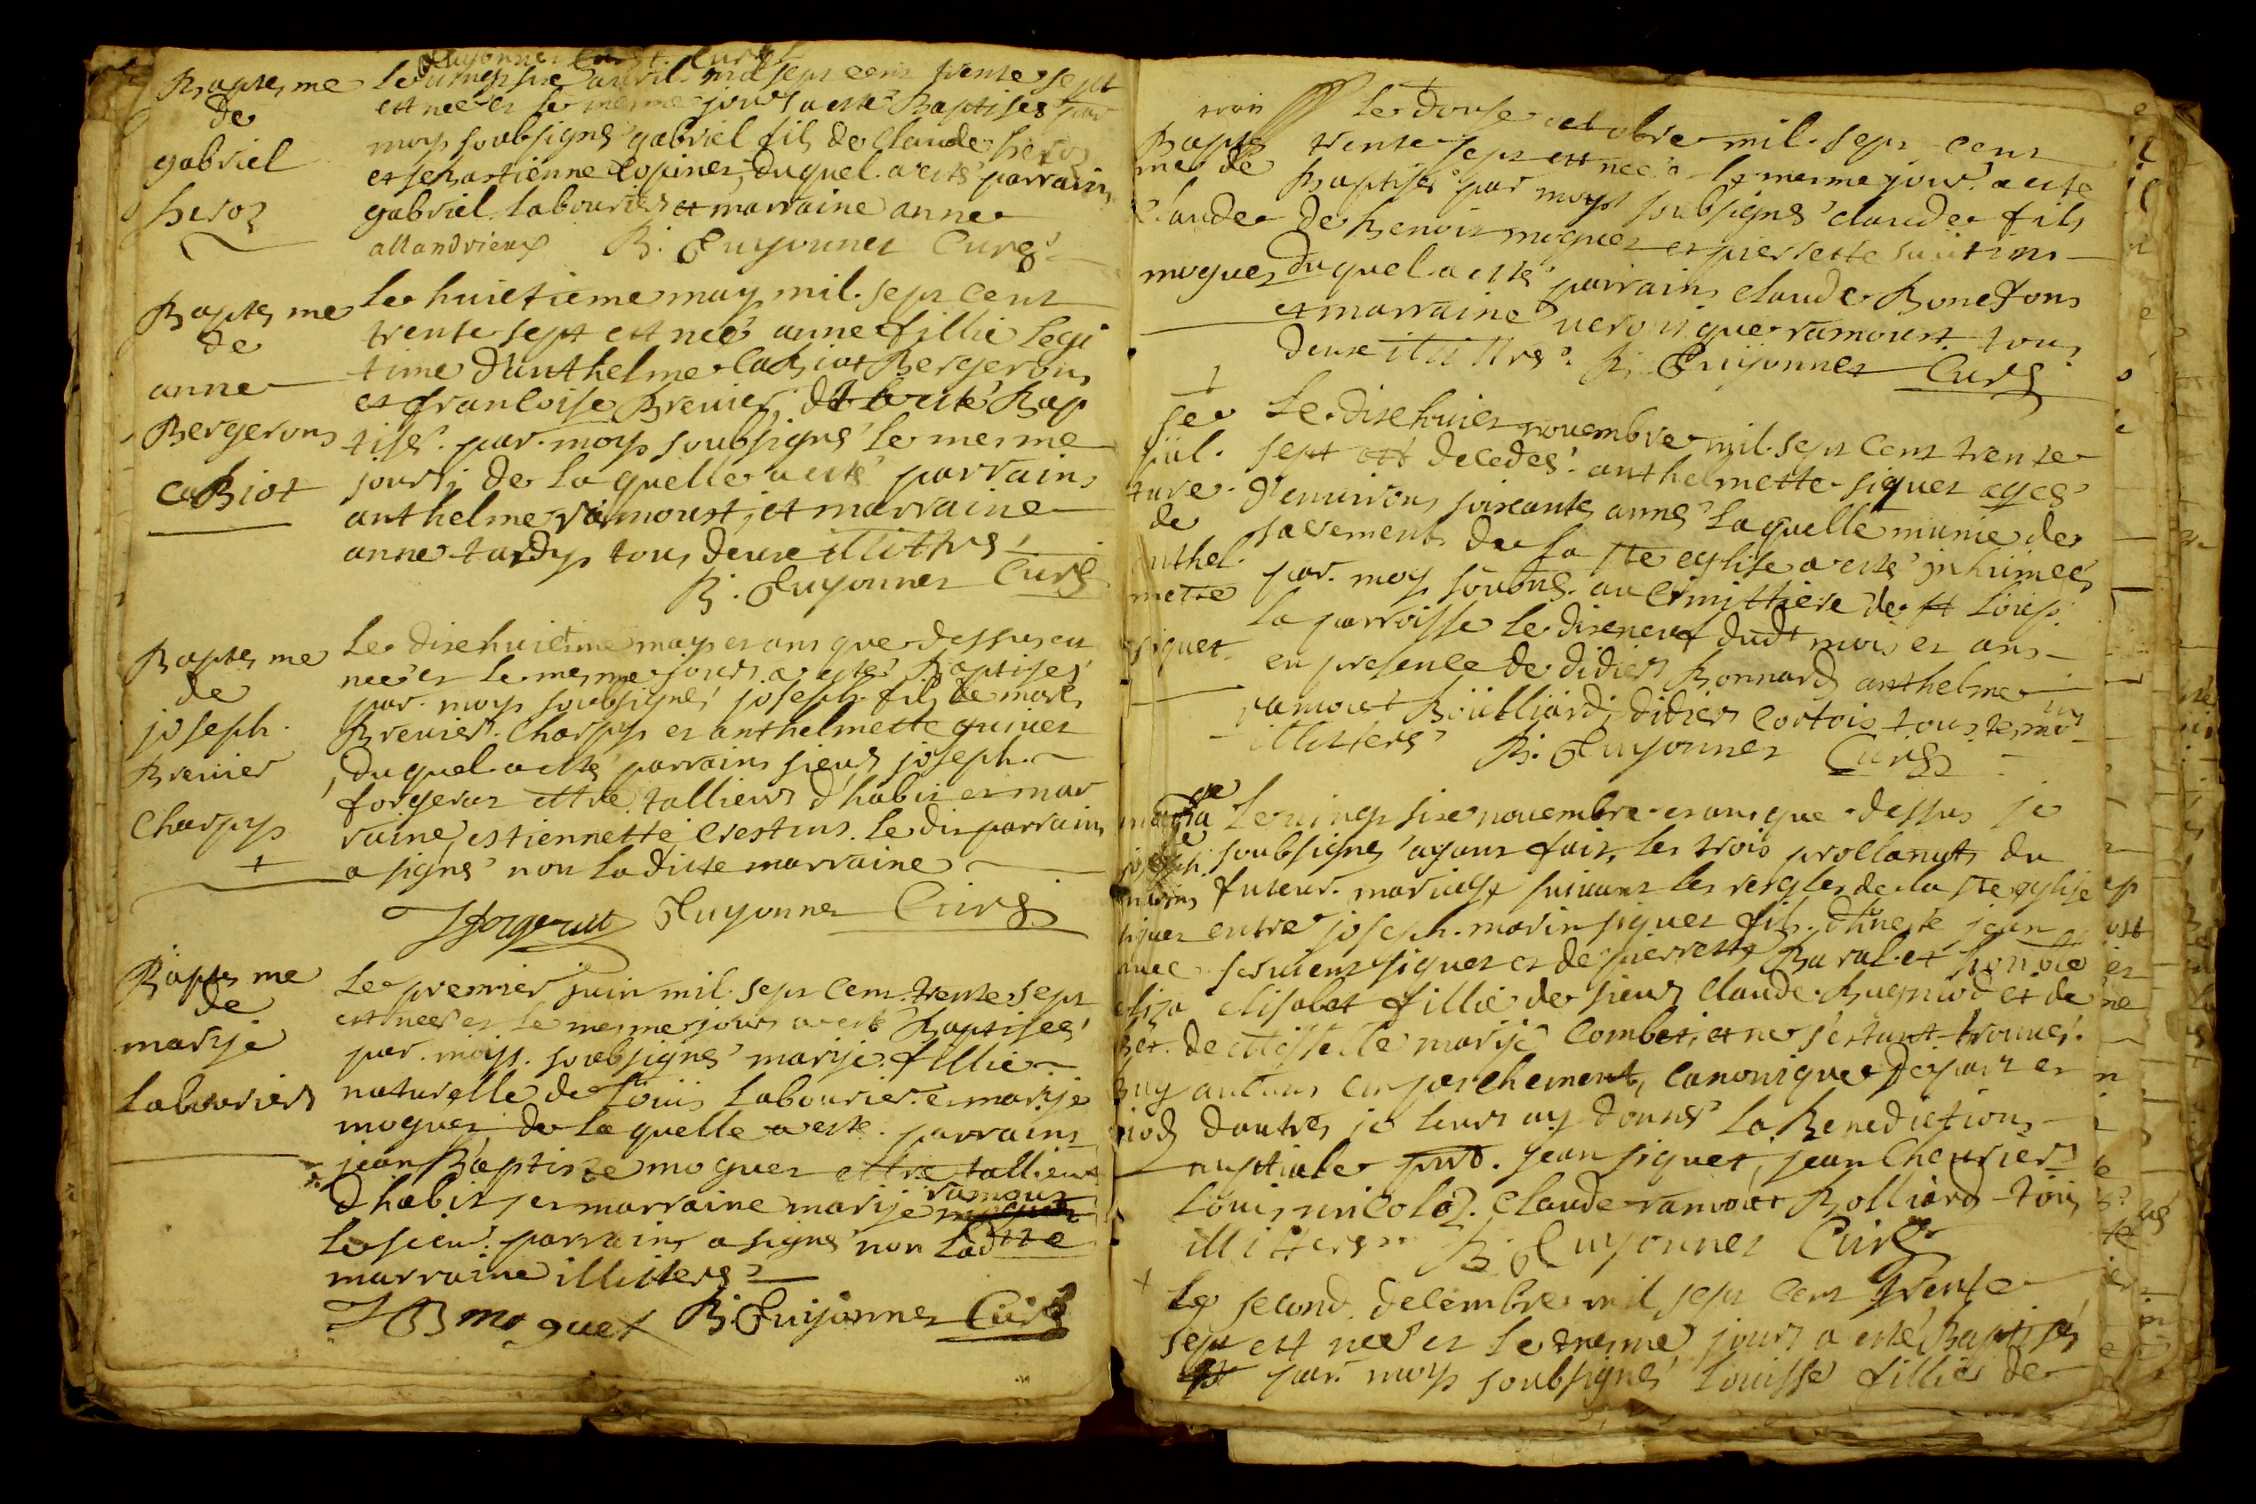 Guyonnet Curé
Baptesme
de
gabriel
heroz
Le vingt sixe avril mil sept cent trente sept
est nee et le mesme jour a esté Baptisés par
moys soubsigné gabriel fils de Claude heroz
et sebastienne Copinet, duquel a esté parrain
gabriel labourier et marraine anne
allandrieux B. Guyonnet Curé
Baptesme
de
anne
Bergerons
CaBiot
Le huictieme may mil sept cent
trente sept est neé anne fillie legi
time d'anthelme CaBiot Bergerons
et francoise Brenier, et a esté Bap
tisé par moys soubsigné le mesme
jour, de laquelle a esté parrains
anthelme ramoust, et marraine
anne tardys tous deux illithrés
B. Guyonnet Curé
Baptesme
de
joseph
Brenier
Charpys
Le dixehuictme mays et ans que dessus est
neé et le mesme jours a esté Baptisés
par moys soubsigné joseph fils de marc
Brenier Charpys et anthelmette guinet
, duquel a esté parrains sieurs joseph
forgeraz ettre tallieurs d'habit et mar
raine, estiennette Crestins. Le dit parrain
a signé non laditte marraine
J forgeraz Guyonnet Curé
Baptesme
de
marije
Labouriers
Le premier juin mil sept cent trente sept
est nees et le mesme jours a esté Baptiseés
par moys soubsigné marije fillie
naturelle de Louis Labourier et marije
moguet de laquelle a esté parrains
jean Baptiste moguet ettre tallieurs
d'habit, et marraine marije ramoust
Le sieur parrains a signé non ladtte
marraine illitterés
J B moguet B. Guyonnet Curé
Baptes
me de
Claude
moguet
Le douse octobre mil sept cent
trente sept est neé et le mesme jour a esté
Baptisé par moys soubsigné claude fils
de Benoit moguet et pierrette
duquel a esté parrains claude Bonefons
et marraine veronique ramoust tous
deux illittrés. B. Guyonnet Curé
se
pul
ture
de
anthel
mette
siguet
Le dixehuict novembre mil sept cent trente
sept est decedeé anthelmette siguet ageé
d'environs soixante anné laquelle munie des
sacrements de la ste eglise a esté jnhumeé
par moy soubsne au cimittiere de st Louis
la parroisse le dixneuf dudt mois et ans
en presence de didiers Bonnard anthelme
ramoust Boulliard, didiers Cortois tous temoins
illitterés B. Guyonnet Curé
maria
ge
de
joseph
marins
siguet
avec
eliza
bet
Bug
niod
Le vingt sixe novembre et ans que dessus je
soubsigné ayant fait les trois prollanuts du
futeur mariage suivant les resgles de la ste eglise
entre joseph marin siguet fils d'hneste jean
servient siguet et de pierrette Baral et honble
elisabet fillie de sieurs Claude Bugniod et de
de moisselle marije Combet, et ne s'estant trouvé
aucuns enpeschement canonique de part et
dautre, je leurs ay donné la Benediction
nuptiale pnt. jean siguet, jean Chevrier
Louis nicolaz. Claude ramoust Bolliard tous
illitterés B. Guyonnet Curé
Le second decembre mil sept cent trente
sept est neé et le mesme jours a esté Baptisés
par moys soubsigné Louisse fillie de